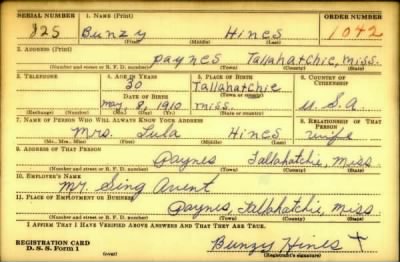 SERIAL NUMBER 1. NAME (Print) ORDER NUMBER
825 Bunzy Hines 1042
(First) (Middle) (Last)
2. ADDRESS (Print)
Paynes Tallahatchie, Miss.
(Number and street or R. F. D. number) (Town) (County) (State)
3. TELEPHONE 4. AGE IN YEARS 5. PLACE OF BIRTH 6. COUNTRY OF CITIZENSHIP
30 Tallahatchie
DATE OF BIRTH (Town or county)
May 8, 1910 Miss. U.S.A.
(Exchange) (Number) (Mo.) (Day) (Yr.) (State or country)
7. NAME OF PERSON WHO WILL ALWAYS KNOW YOUR ADDRESS 8. RELATIONSHIP OF THAT PERSON
Mrs. Lula Hines wife
(Mr., Mrs., Miss) (First) (Middle) (Last)
9. ADDRESS OF THAT PERSON
Paynes Tallahatchie, Miss
(Number and street or R. F. D. number) (Town) (County) (State)
10. EMPLOYER'S NAME
Mr. Sing Avent
11. PLACE OF EMPLOYMENT OR BUSINESS
Paynes, Tallahatchie, Miss
(Number and street or R. F. D. number) (Town) (County) (State)
I AFFIRM THAT I HAVE VERIFIED ABOVE ANSWERS AND THAT THEY ARE TRUE.
REGISTRATION CARD
D. S. S. Form 1 Bunzy Hines X
(Registrant's signature)